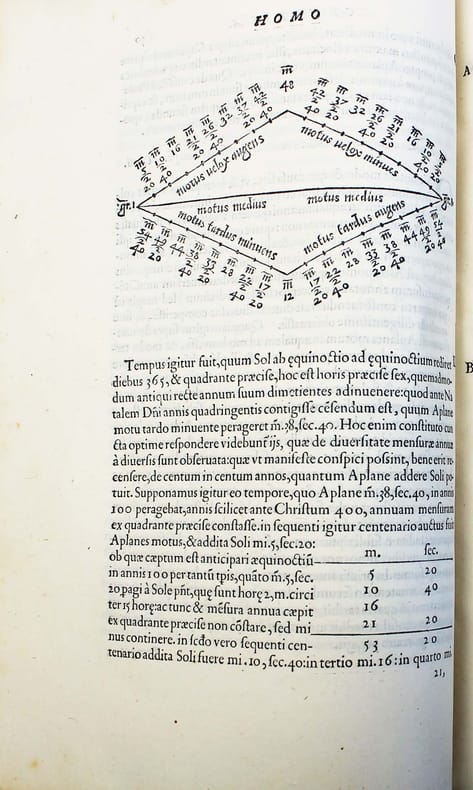 HOMO
m̄ 48
motus uelox augens
motus uelox minues
motus medius
motus medius
motus tardus minuens
motus tardus augens
m̄ 12
Tempus igitur fuit, quum Sol ab ęquinoctio ad ęquinoctium rediret
diebus 365, & quadrante præcise, hoc est horis præcise sex, quemadmo-
dum antiqui recte annum suum dimetientes adinuenere: quod ante Na
talem Dñi annis quadringentis contigisse cēsendum est, quum Aplane
motu tardo minuente perageret m̄.38, sec.40. Hoc enim constituto cun
cta optime respondere videbunť ijs, quæ de diuersitate mensuræ annuæ
à diuersis sunt obseruata: quæ vt manifeste conspici possint, bene erit re-
censere, de centum in centum annos, quantum Aplane addere Soli po-
tuit. Supponamus igitur eo tempore, quo Aplane m̄.38, sec.40, in annis
100 peragebat, annis scilicet ante Christum 400, annuam mensuram
ex quadrante præcise constasse. in sequenti igitur centenario auctus fuit
Aplanes motus, & addita Soli mi.5, sec.20:
ob quæ cæptum est anticipari æquinoctiū
in annis 100 per tantū tpis, quāto m̄.5, sec.
20, pagi à Sole pñt, quę sunt horę 2, m. circi
ter 15 horę: ac tunc & mēsura annua cæpit
ex quadrante præcise non cōstare, sed mi
nus continere. in scđo vero sequenti cen-
m. sec.
5 20
10 40
16
21 20
53 20
tenario addita Soli fuere mi.10, sec.40: in tertio mi.16: in quarto mi.
21,
A
B